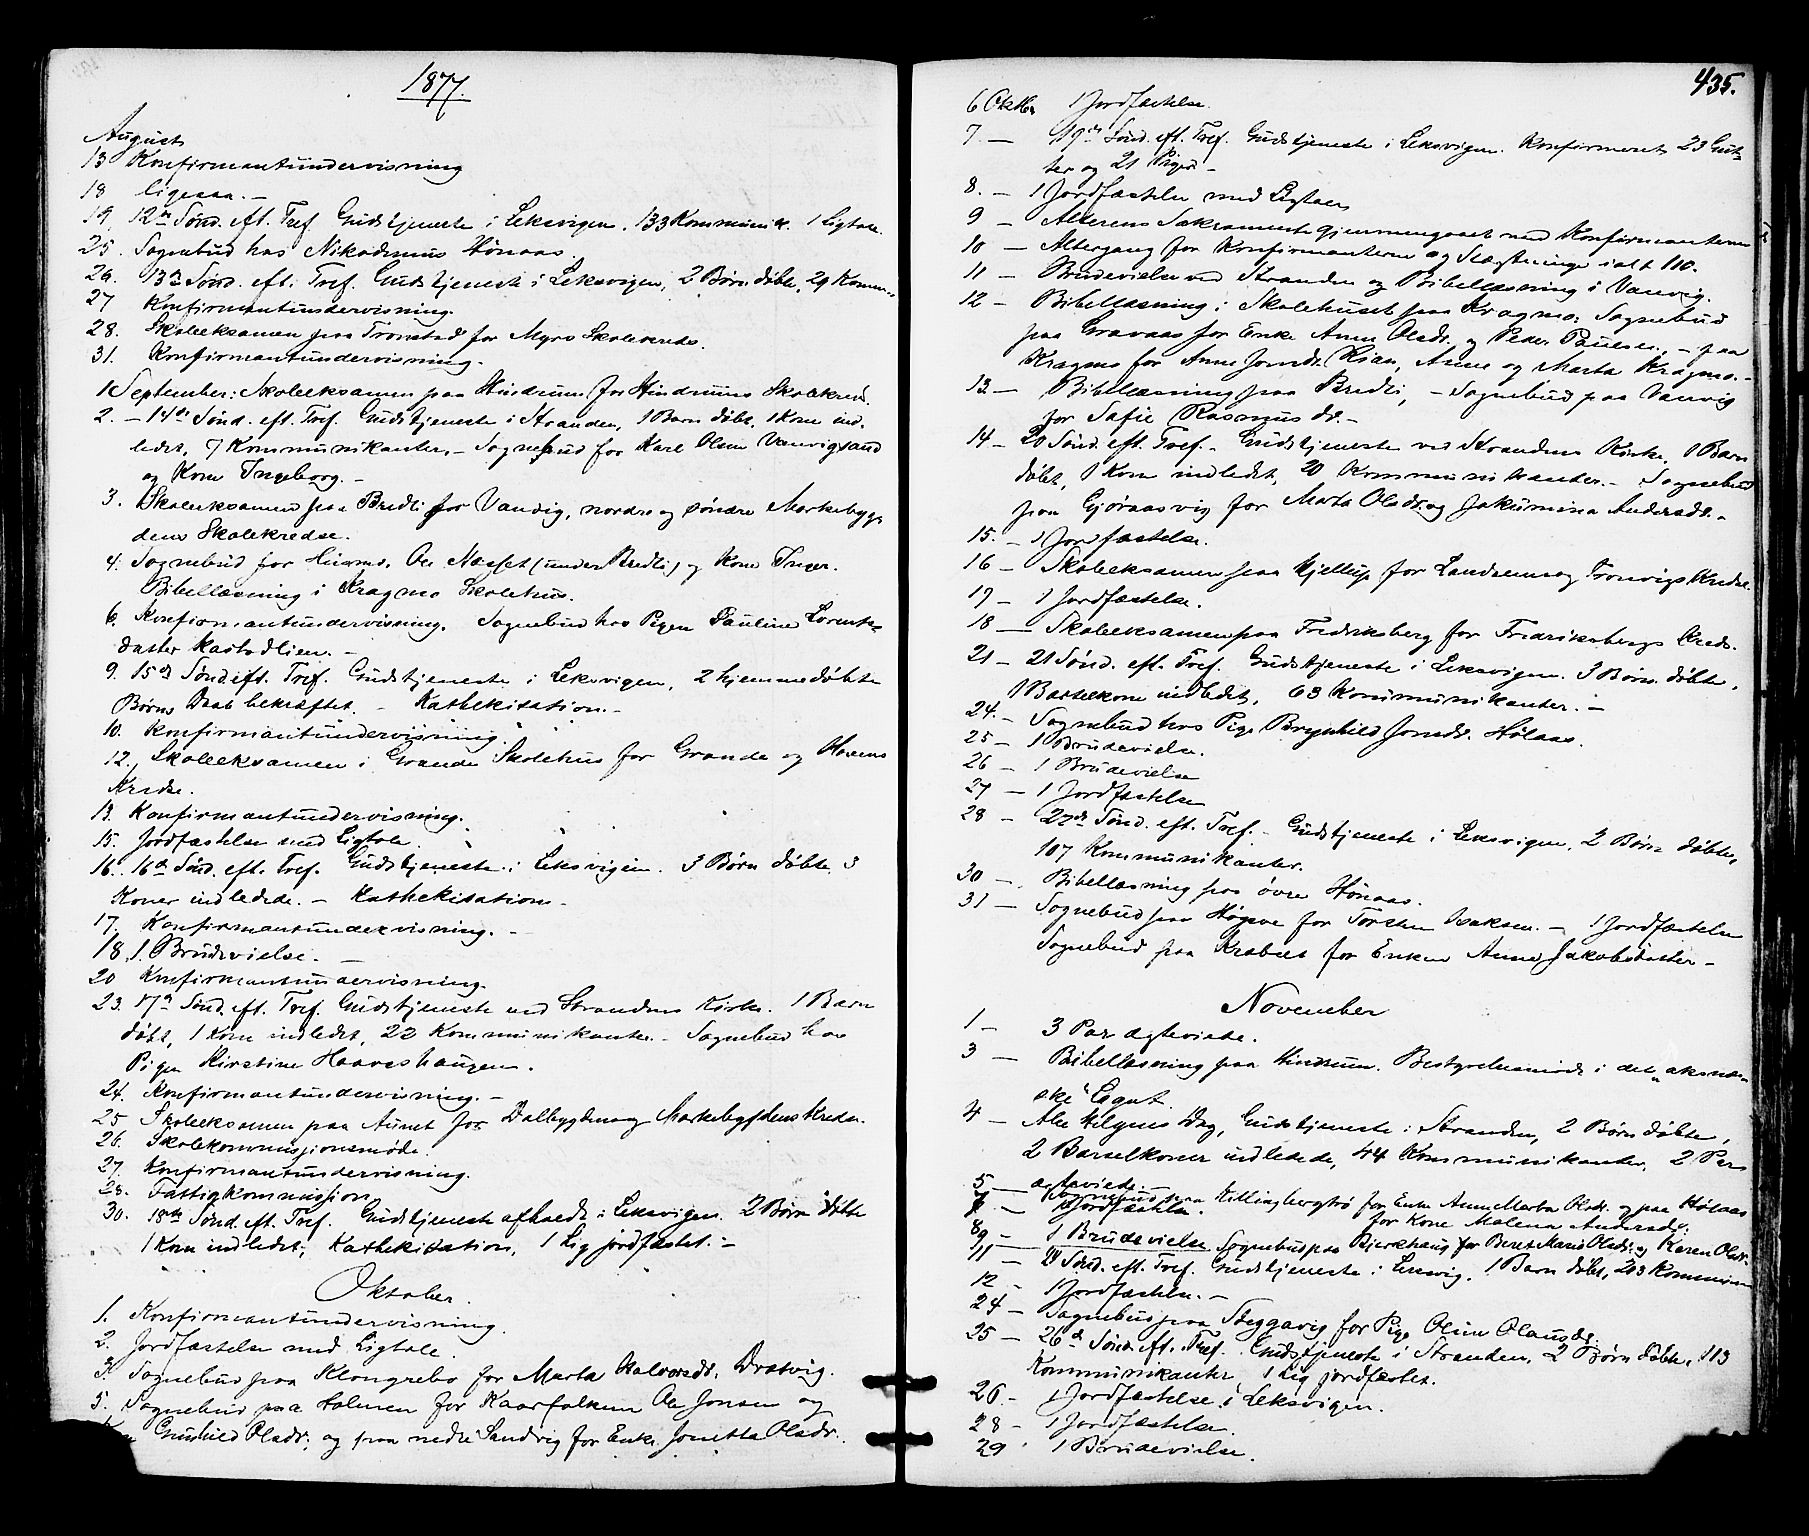 1877.
August
13 Konfirmantundervisning
18 ligesaa. -
19. 12te Sønd. eft. Tref. Gudstjeneste i Leksvigen. 133 Kommunik. 1 Ligtale.
25. Sognebud hos Nikodemus Hønaas.
26. 13de Sønd. eft. Tref. Gudstjeneste i Leksvigen, 2 Børn døbte, 29 Komm.
27 Konfirmantundervisning.
28. Skoleeksamen paa Tronstad for Myrs Skolekreds.
31. Konfirmantundervisning. -
1 September: Skoleeksamen paa Hindrum for Hindrums Skolekred.
2. - 14de Sønd. eft. Tref. Gudstjeneste i Stranden, 1 Barn døbt, 1 Kone ind-
ledet, 7 Kommunikanter. - Sognebud for Karl Olsen Vanvigsand
og Kone Ingeborg. -
3. Skoleeksamen paa Bredli for Vanvig, nordre og søndre Markebyg-
dens Skolekredse.
4. Sognebud for Husmd. Ole Næsset (under Bredli) og Kone Inger.
Bibellæsning i Kragmo Skolehus.
6. Konfirmantundervisning. Sognebud hos Pigen Pauline Lorents-
datter Kastodlien. -
9. 15de Sønd. eft. Tref. Gudstjeneste i Leksvigen, 2 hjemmedøbte
Børns Daab bekræftet. - Kathekisation. -
10. Konfirmantundervisning.
12. Skoleeksamen i Grande Skolehus for Grande og Hovens
Kredse.
13. Konfirmantundervisning.
15. Jordfæstelse med Ligtale.
16. 16de Sønd. eft. Tref. Gudstjeneste i Leksvigen. 3 Børn døbte, 3
Koner indledede. - Kathekisation. -
17. Konfirmantundervisning. -
18. 1 Brudevielse. -
20 Konfirmantundervisning.
23. 17de Sønd. eft. Tref. Gudstjeneste ved Strandens Kirke. 1 Barn
døbt, 1 Kone indledet, 22 Kommunikanter. - Sognebud hos
Pigen Kirstine Haaveshaugen.
24. Konfirmantundervisning. -
25 Skoleeksamen paa Aunet for Dalbygden og Markebygdens Kredse.
26. Skolekommissionsmøde.
27. Konfirmantundervisning.
28. Fattigkommission.
30. 18de Sønd. eft. Tref. Gudstjeneste afholdt i Leksvigen. 2 Børn døbte
1 Kone indledet, Kathekisation, 1 Lig jordfæstet. -
Oktober.
1. Konfirmantundervisning.
2. Jordfæstelse med Ligtale.
3. Sognebud paa Klongrebo for Marta Halvorsdt. Dratvig.
5. Sognebud paa Holmen for Kaarfolkene Ole Jonsen og
Gunhild Olsdr., og paa nedre Sandvig for Enke Jonetta Olsdr.
435.
6 Oktbr 1 Jordfæstelse.
7. - 19de Sønd. eft. Tref. Gudstjeneste i Leksvigen. Konfirmeret 23 Gut-
ter og 21 Piger -
8. - 1 Jordfæstelse med Ligtale
9 - Alterens Sakramente gjennemgaaet med Konfirmanterne
10 - Altergang for Konfirmanterne og Slægtninge ialt 110.
11 - Brudevielse ved Stranden og Bibellæsning i Vanvig.
12 - Bibellæsning i Skolehuset paa Kragmo; Sognebud
paa Gravaas for Enke Anne Olsdt. og Peder Paulsen, - paa
Kragmo for Anne Jonsdt. Rian, Anne og Marta Kragmo. -
13 - Bibellæsning paa Bredli, - Sognebud paa Vanvig
for Sofie Rasmusdt. -
14 - 20 Sønd. eft. Tref. - Gudstjeneste ved Strandens Kirke. 1 Barn
døbt, 1 Kone indledet, 20 Kommunikanter. - Sognebud
paa Gjøraasvig for Marta Olsdt. og Jakumina Andersdt. -
15. - 1 Jordfæstelse.
16 - Skoleeksamen paa Hjellup for Landsems og Tronvigs Kredse.
17 - 1 Jordfæstelse.
18 - Skoleeksamen paa Fredriksberg for Fredriksbergs Kreds.
21 - 21 Sønd. eft. Tref. Gudstjeneste i Leksvigen. 3 Børn døbte,
1 Barselkone indledet, 63 Kommunikanter. -
24. - Sognebud hos Pige Brynhild Jonsdt. Hølaas.
25 - 1 Brudevielse.
26 - 1 Brudevielse
27 - 1 Jordfæstelse
28 - 22de Sønd. eft. Tref. - Gudstjeneste i Leksvigen. 2 Børn døbte,
107 Kommunikanter.
30 - Bibellæsning paa øvre Hønaas.
31 - Sognebud paa Høgsve for Torsten Isaksen. - 1 Jordfæstelse
Sognebud paa for Enken Anne Jakobsdatter -
November
1 - 3 Par ægteviede.
3 - Bibellæsning paa Hindrum. Bestyrelsesmøde i det „aksnæs-
ske“ Legat.
4 - Alle Helgens Dag, Gudstjeneste i Stranden, 2 Børn døbte,
2 Barselkoner indledede, 44 Kommunikanter. 2 Par
ægteviede.
5 - Sognebud paa Killingbergtrø for Enke Anne Marta Olsdt. og paa Hølaas
for Kone Malena Andersdt.
7. - 1 Jordfæstelse.
8/9 - 1 Brudevielse. Sognebud paa Bjerkhaug for Beret Maria Olsdt. og Karen Olsdt.
11 - Sønd. eft. Tref. Gudstjeneste i Leksvig. 1 Barn døbt, 203 Kommunik
12 - 1 Jordfæstelse. -
24 - Sognebud paa Seggavig for Pige Oline Olausdt.
25 - 26de Sønd. eft. Tref. Gudstjeneste i Stranden, 2 Børn døbte, 113
Kommunikanter 1 Lig jordfæstet.
26 - 1 Jordfæstelse i Leksvigen.
28 - 1 Jordfæstelse.
29 1 Brudevielse.